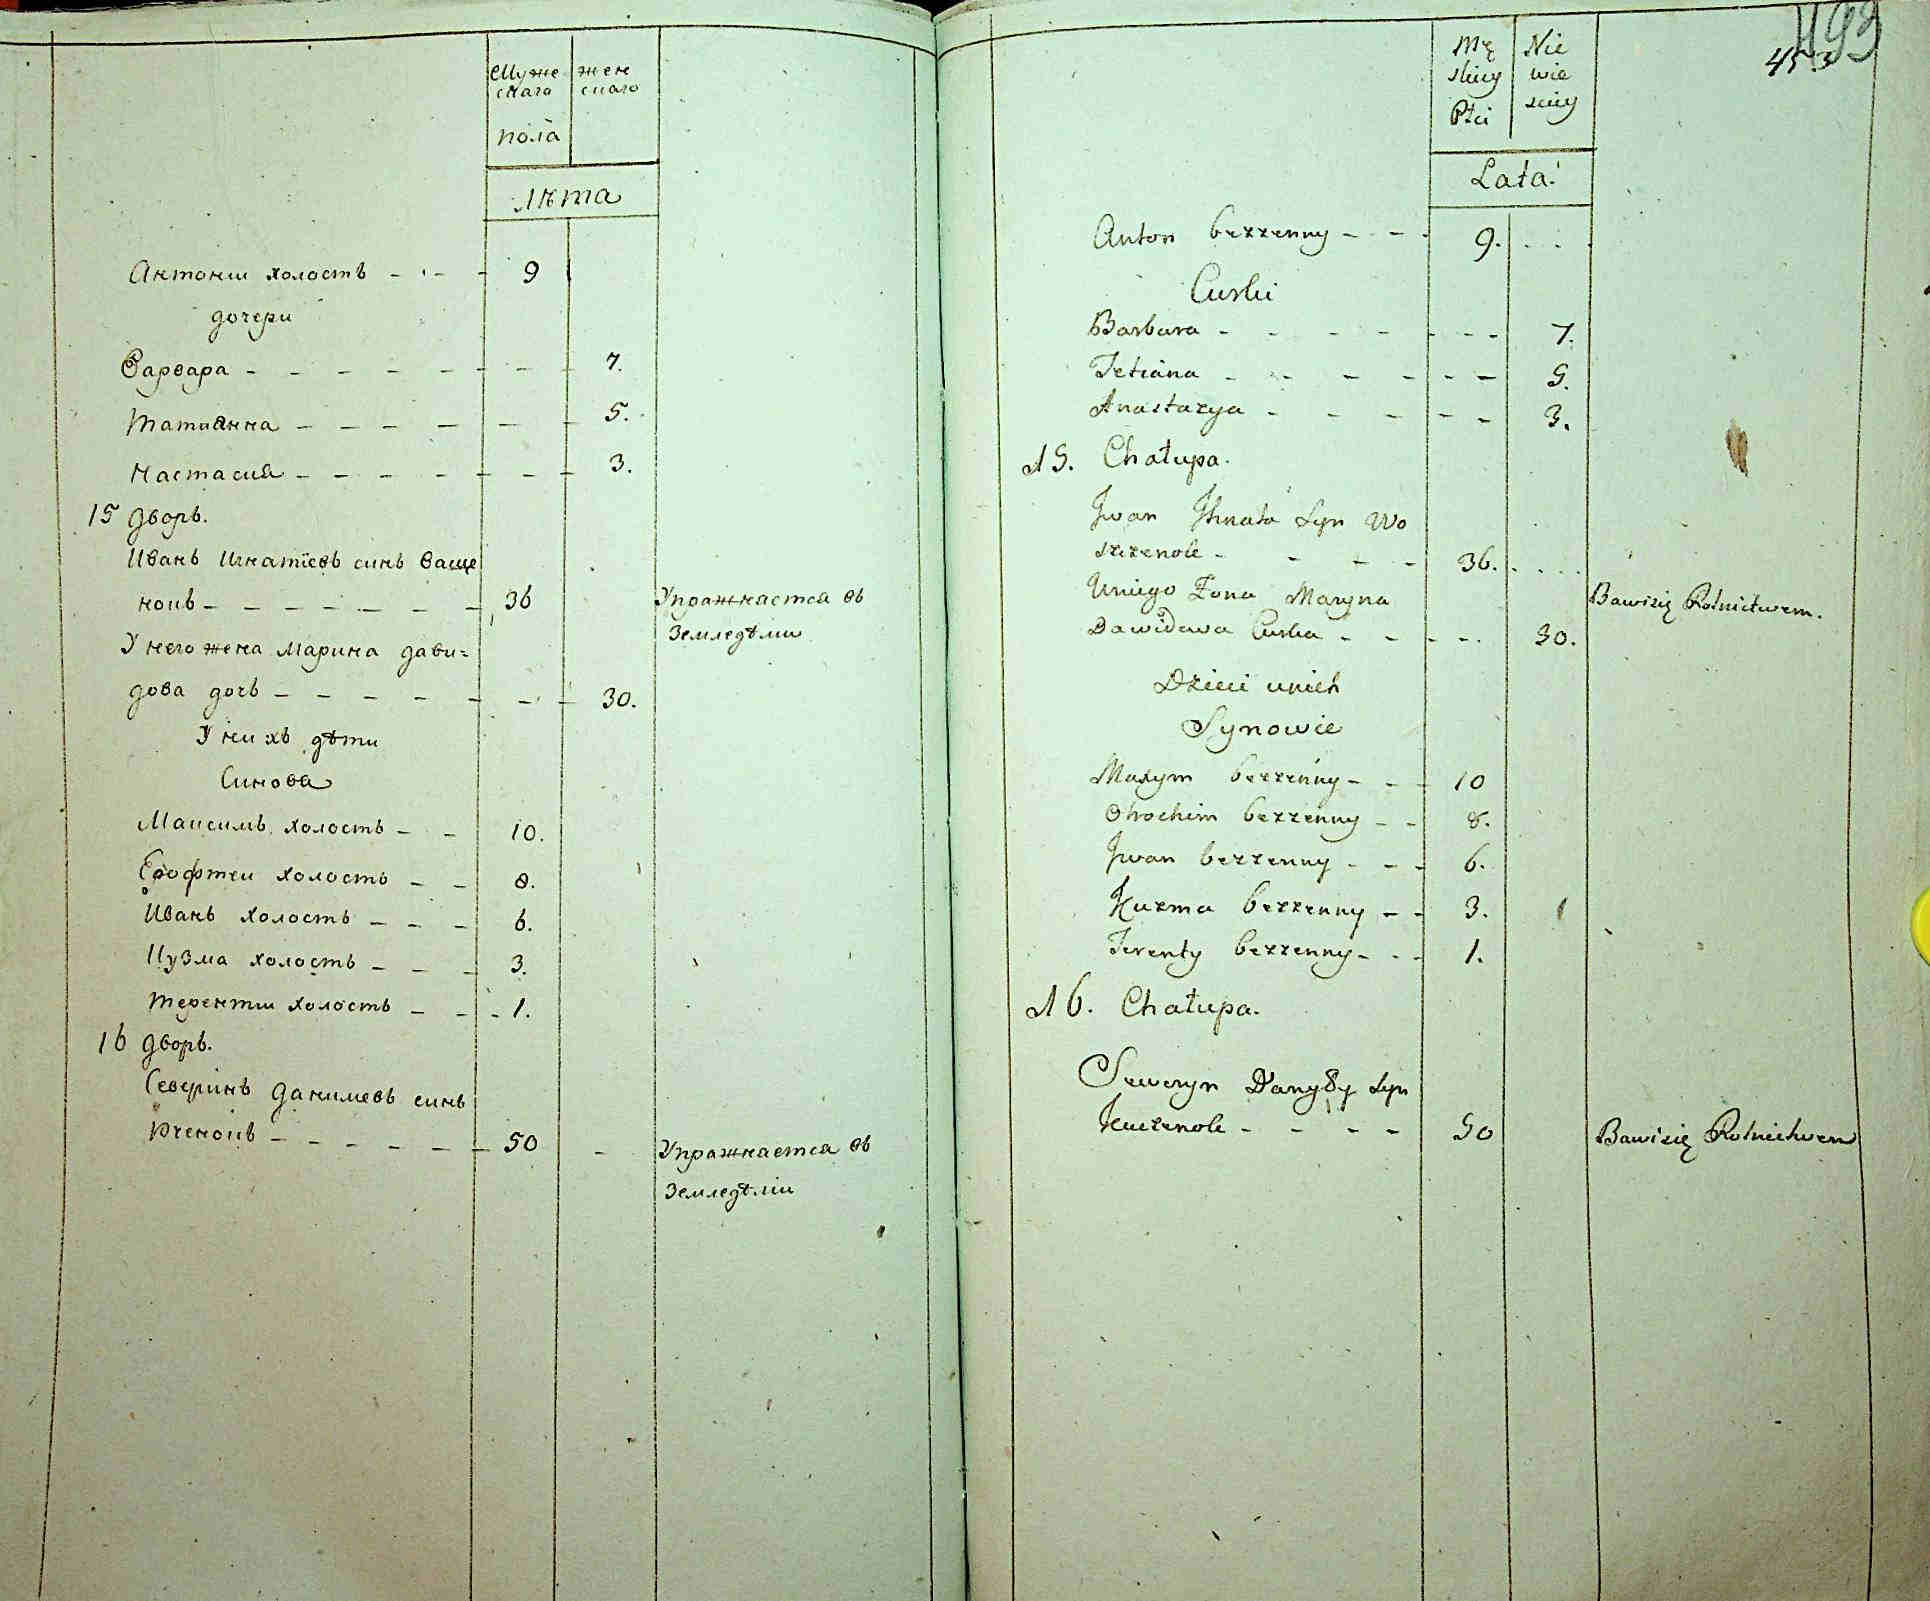 Муже
скаго
жен
скаго
пола
лѣта
Антонии холостъ - - - 9
дочери
Варвара - - - - - - - - 7.
Татиянна - - - - - - - 5.
Настасия - - - - - - - 3.
15 дворъ.
Иванъ Игнатіевъ синъ Ваще
нокъ - - - - - - - 36
Упражняется въ
земледѣлии
У него жена Марина дави=
дова дочъ - - - - - - - 30.
У нихъ дѣти
Синова
Максимъ холостъ - - 10.
Ерофтеи холостъ - - 8.
Иванъ холостъ - - - 6.
Кузма холостъ - - - 3.
Терентии холостъ - - - 1.
16 дворъ.
Северинъ Данилевъ синъ
- - - - - - 50 -
Упражняется въ
земледѣліи
453
Mę
skiey
Płci
Nie
wie
sciey
Lata
Anton bezzenny - - - 9. . . .
Curki
Barbara - - - - - - - - 7.
Tetiana - - - - - - - 5.
Anastazya - - - - - - 3.
15. Chałupa.
Jwan Jhnata Syn Wo
szczenok - - - - 36. . . . .
Uniego Żona Maryna
Dawidowa Curka - - - - . 30.
Bawisię Rolnictwem.
Dzieci unich
Synowie
Maxym bezzenny - - - 10
Ohrochim bezzenny - - 8.
Jwan bezzenny - - - 6.
Kuzma bezzenny - - 3.
Terenty bezzenny - - - 1.
16. Chałupa.
Seweryn Danyły Syn
Kuczenok - - - - 50
Bawisię Rolnictwem